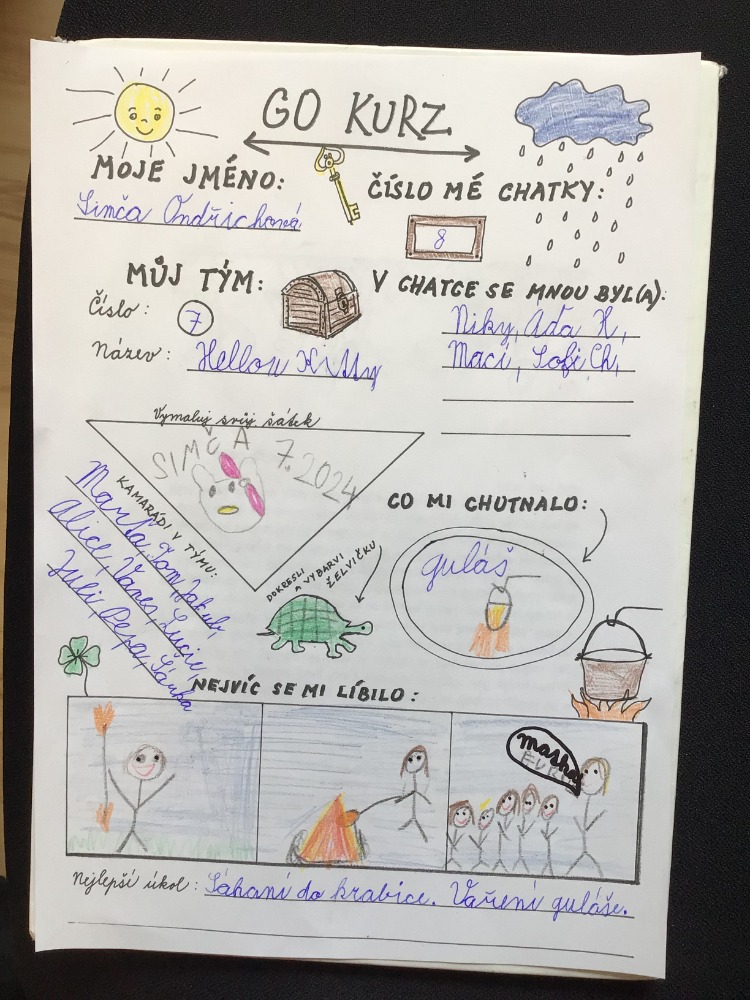 GO KURZ
MOJE JMÉNO:
Simča Ondřichová
ČÍSLO MÉ CHATKY:
8
MŮJ TÝM:
Číslo: 7
Název: Hellou Kitty
V CHATCE SE MNOU BYL(A):
Niky, Aďa K,
Maci, Sofi Ch,
Vymaluj svůj šátek
SIMČA 7.2024
KAMARÁDI V TÝMU:
Marťa, Tom, Jakub,
Alice, Vanes, Lucie,
Juli, Pepa, Sárka
DOKRESLI
A VYBARVI
ŽELVIČKU
CO MI CHUTNALO:
guláš
NEJVÍC SE MI LÍBILO:
Nejlepší úkol: Sáhaní do krabice. Vaření guláše.